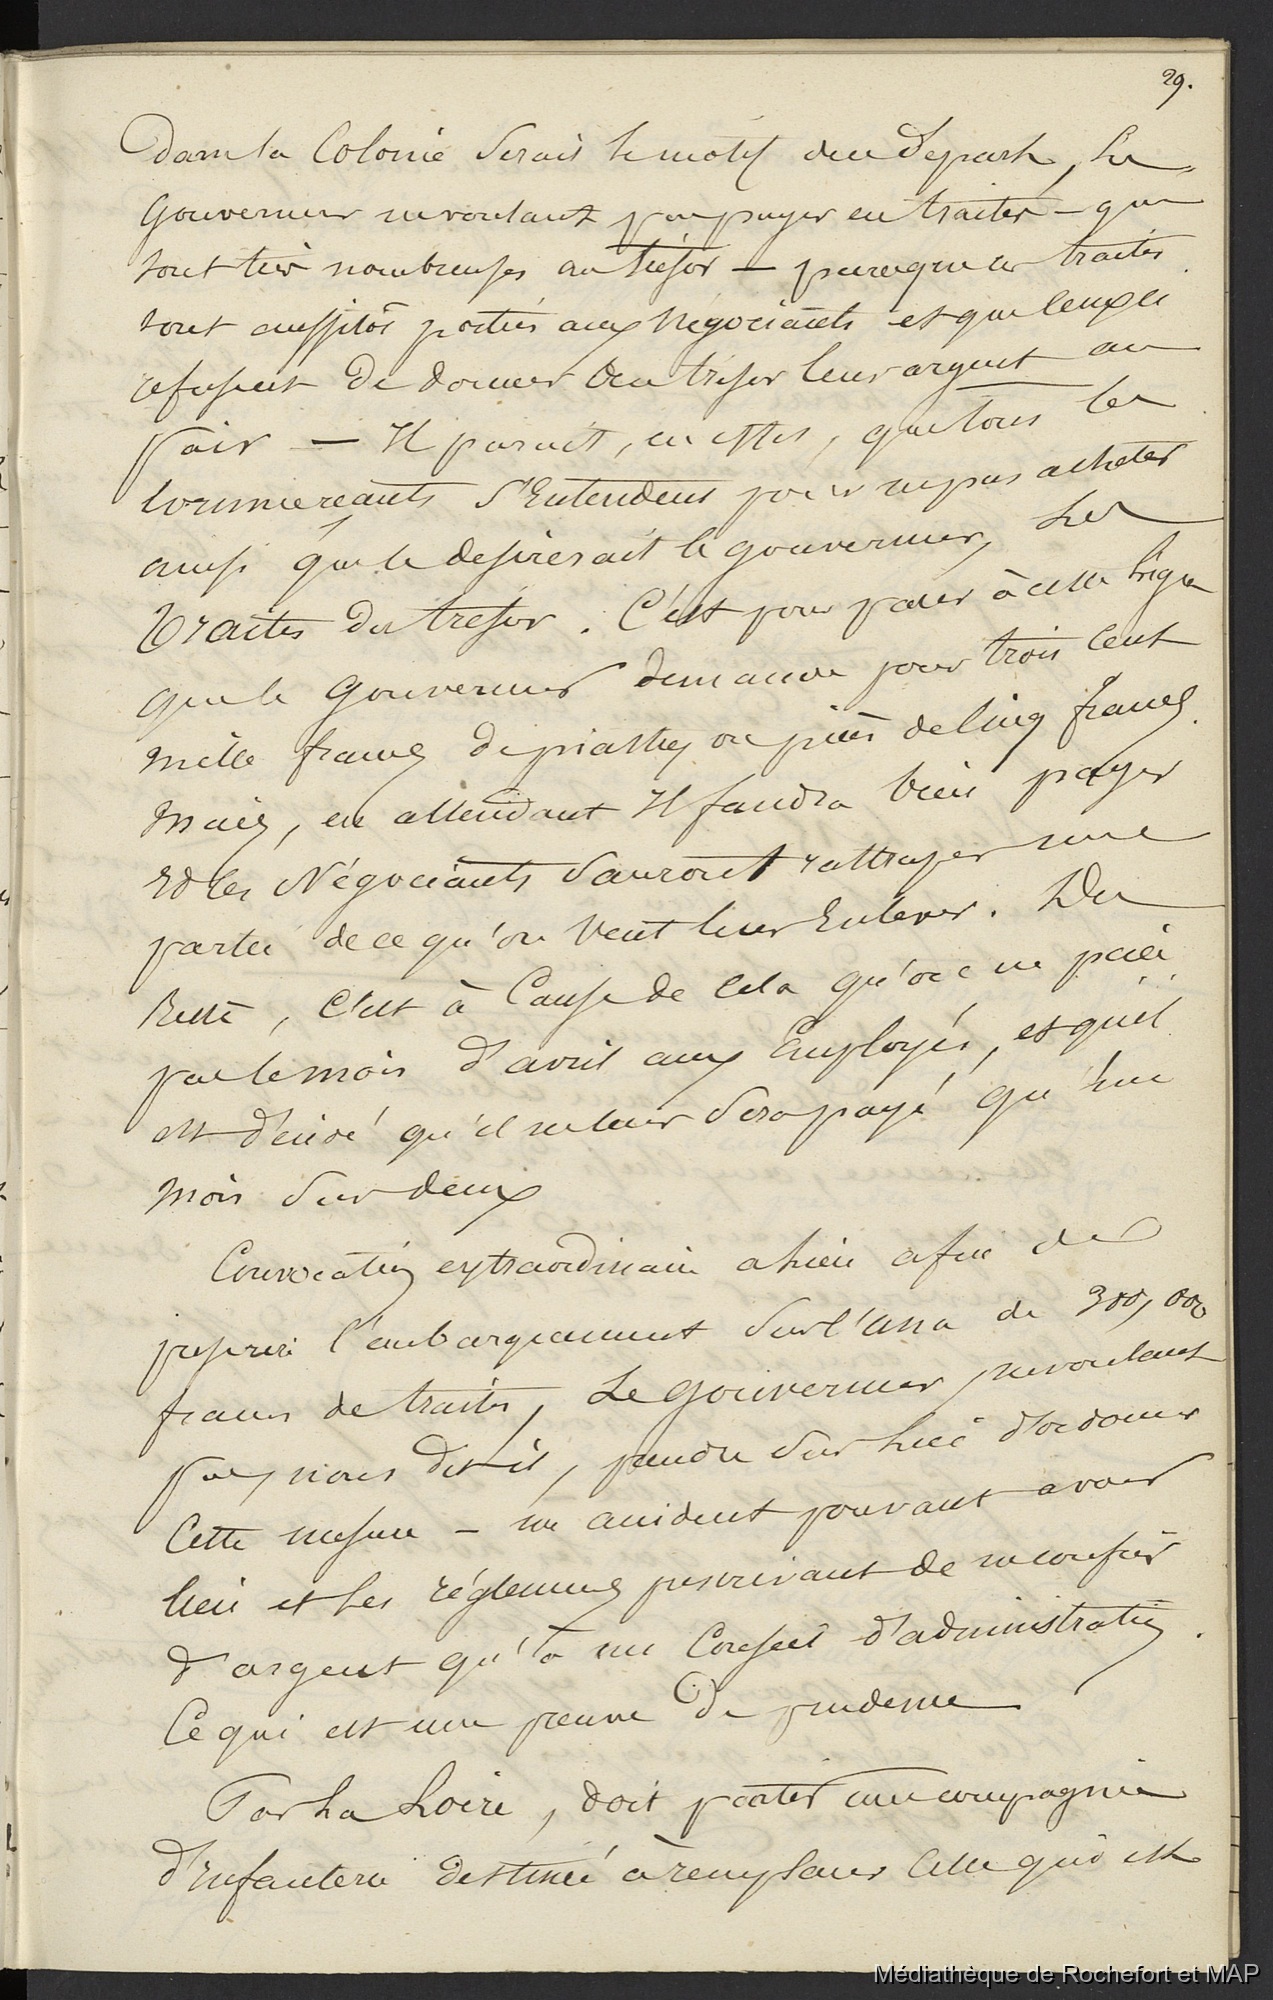 29.
dans la Colonie serait le motif du départ, le
Gouverneur ne voulant pas payer en traites - qui
sont très nombreuses au trésor — parceque ces traites
sont aussitôt portées aux Négociants et que ceux ci
refusent de donner au trésor leur argent au
pair — Il parait, en effet, que tous les
commercants s'Entendent pour ne pas acheter
ainsi que le desirerait le gouverneur, les
traites du tresor. C'est pour parer à cette ligue
que le Gouverneur demande pour trois cent
mille francs de piastres ou pièces de Cinq francs.
Mais, en attendant Il faudra bien payer
Et les Négociants sauront rattraper une
partie de ce qu'on veut leur Enlever. Du
Reste, C'est à Cause de Cela qu'on ne paie
pas le mois d'avril aux Employés, et qu'il
est décidé qu'il ne leur sera payé qu'un
mois sur deux
Convocation extraordinaire a lieu afin de
préparer l'embarquement sur l'Ana de 300,000
francs de traites, Le Gouverneur, ne voulant
pas, nous dit-il, prendre sur lui d'ordonner
Cette mesure - un accident pouvant avoir
lieu et les réglements prescrivant de ne confier
d'argent qu'à un Conseil d'administration.
Ce qui est une preuve de prudence
Par La Loire, doit partir une compagnie
d'Infanterie destinée à remplacer Celle qui est
Médiathèque de Rochefort et MAP